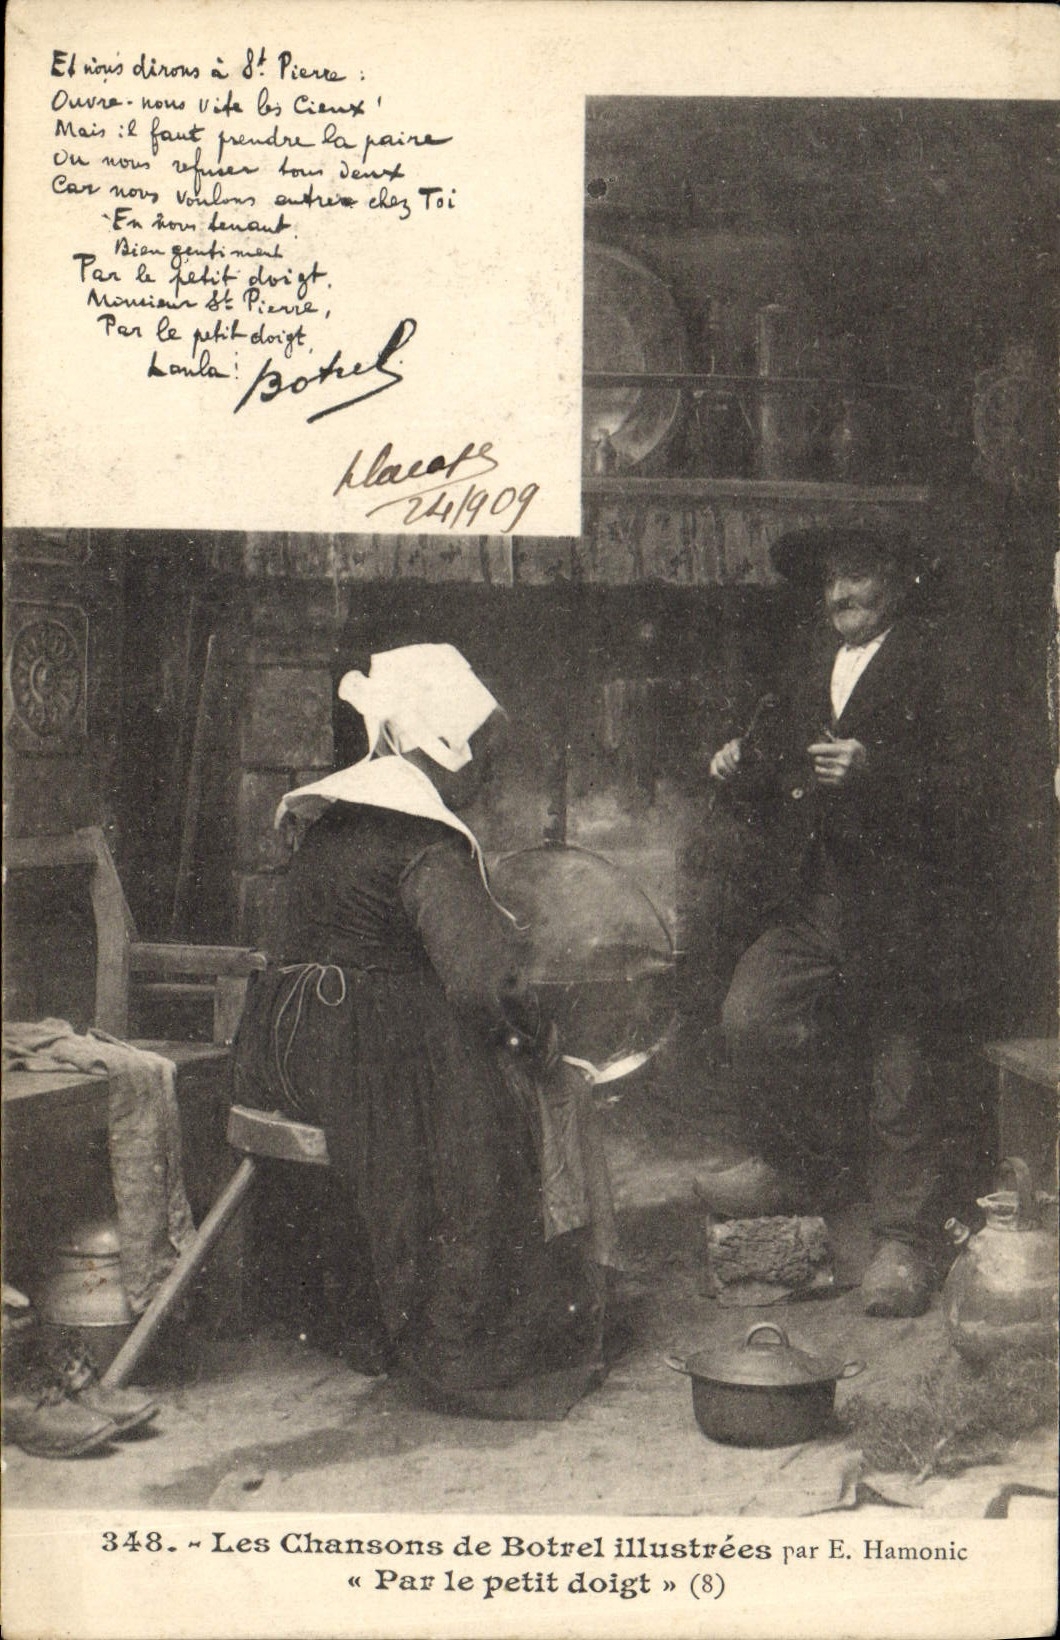 Et nous dirons à St. Pierre :
Ouvre-nous vite les Cieux !
Mais il faut prendre la paire
Ou nous refuser tous deux
Car nous voulons entrer chez Toi
En nous tenant
Bien gentiment
Par le petit doigt,
Monsieur St Pierre,
Par le petit doigt,
Lonla !
Botrel
24/909
348. - Les Chansons de Botrel illustrées par E. Hamonic
« Par le petit doigt » (8)